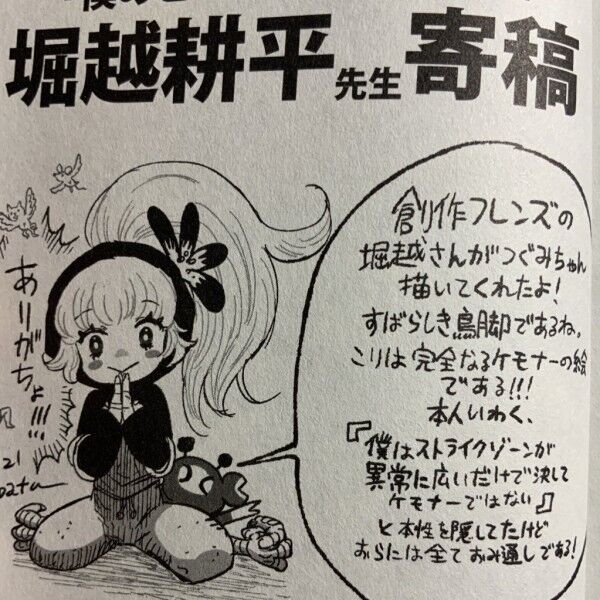 堀越耕平先生寄稿
創作フレンズの
堀越さんがつぐみちゃん
描いてくれたよ!
すばらしき鳥脚であるね。
こりは完全なるケモナーの絵
である!!!
本人いわく、
『僕はストライクゾーンが
異常に広いだけで決して
ケモナーではない』
と本性を隠してたけど
おらには全ておみ通しである!
ありがちょ!!!
21